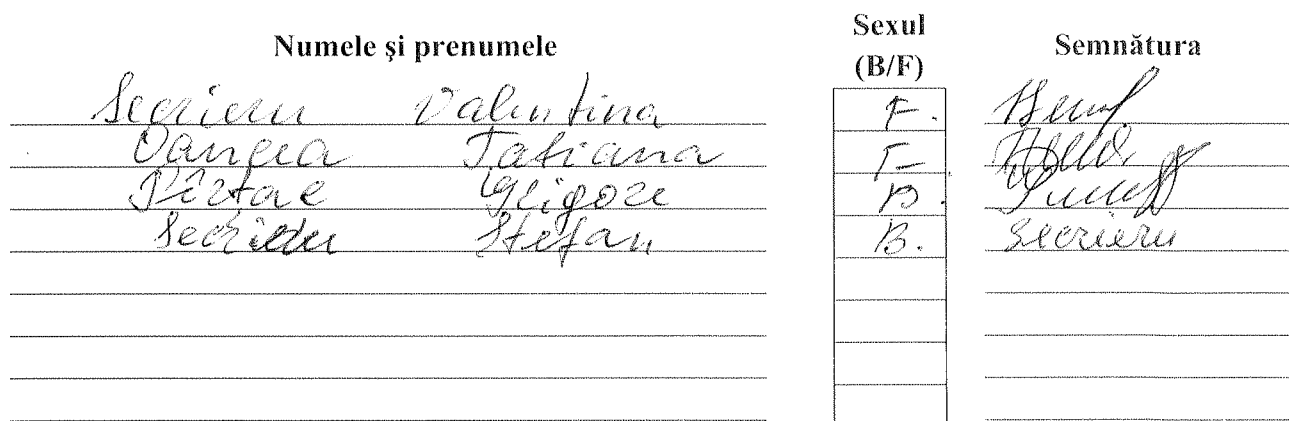 Numele şi prenumele Sexul (B/F) Semnătura
Secrieru Valentina F.
Tatiana F
Pîrtac Grigore B.
Secrieru Stefan B. Secrieru